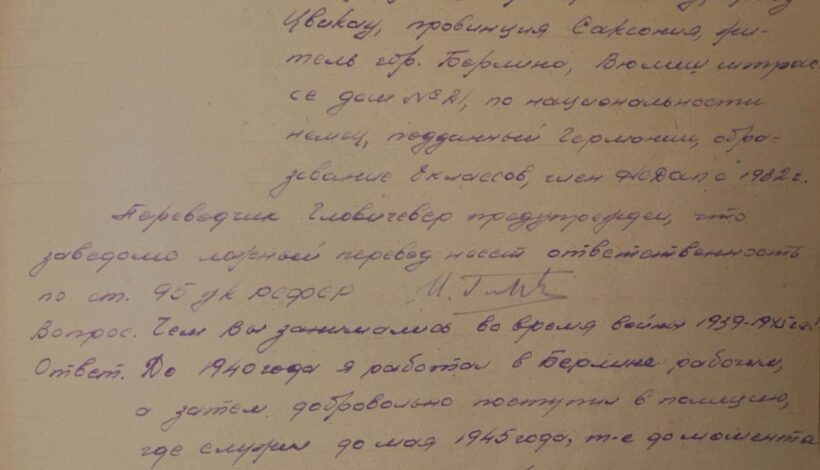 Цвикау, провинция Саксония, жи-
тель гор. Берлина, Вюлиш штрас
се дом № 21, по национальности
немец, подданный Германии, обра-
зование 8 классов, член НСДАП с 1932 г.
Переводчик Гловичевер предупрежден, что
заведомо ложный перевод несет ответственность
по ст. 95 УК РСФСР
Вопрос. Чем Вы занимались во время войны 1939-1945 г.г.
Ответ. До 1940 года я работал в Берлине рабочим,
а затем добровольно поступил в полицию,
где служил до мая 1945 года, т-е до момента